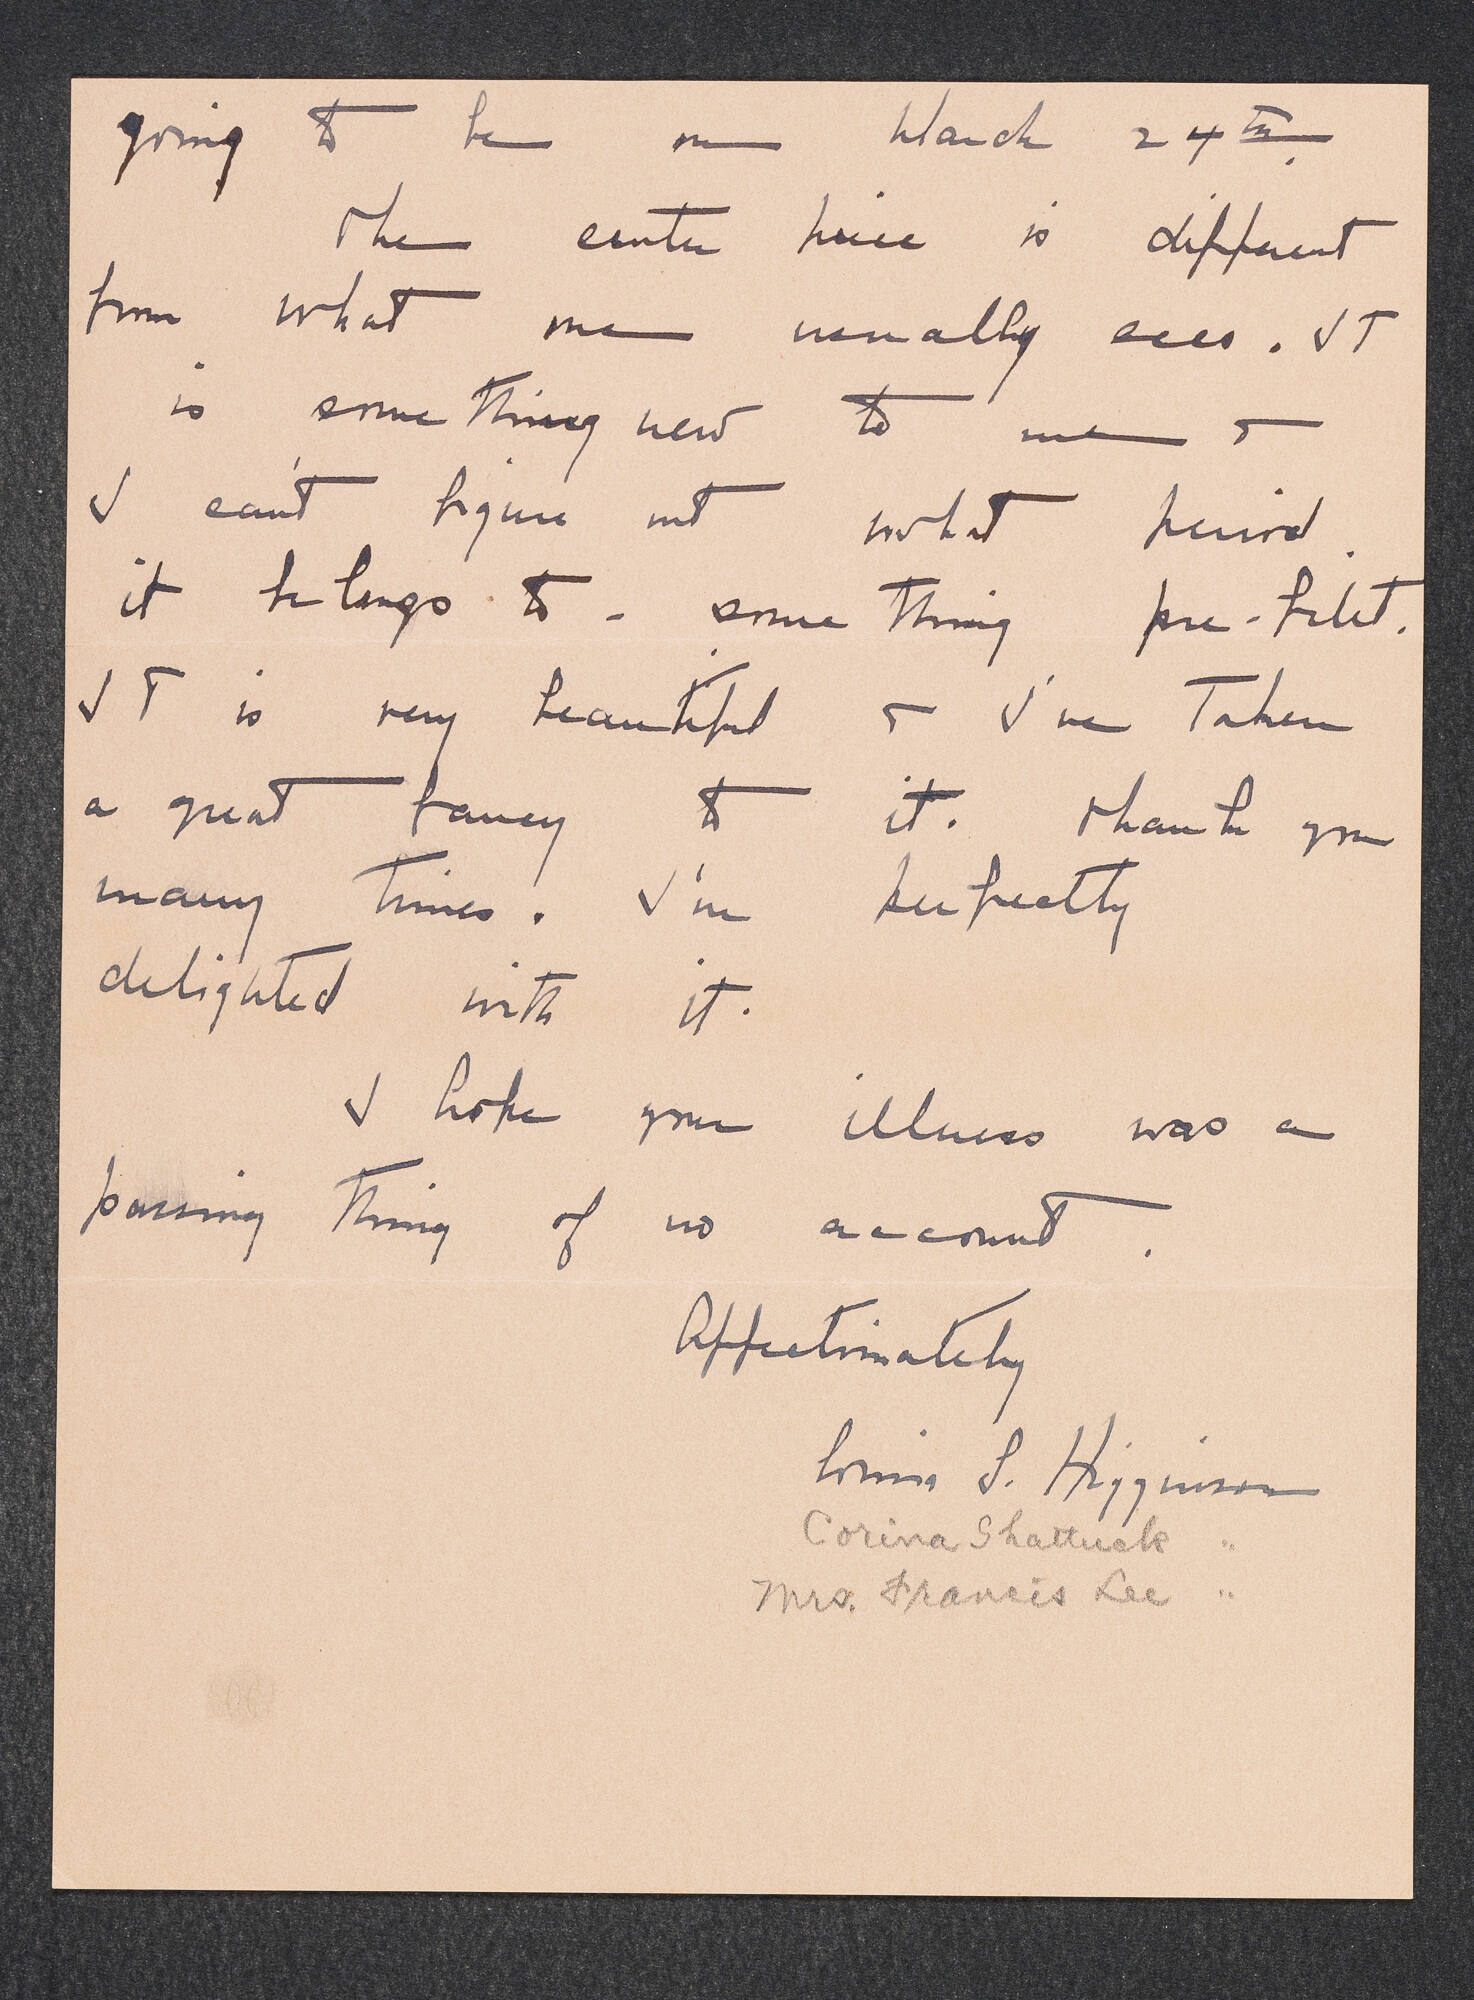 going to be on March 24th.
The center piece is different
from what one usually sees. It
is something new to me &
I can't figure out what period
it belongs to - something pre-filet.
It is very beautiful & I've Taken
a great fancy to it. Thank you
many times. I'm perfectly
delighted with it.
I hope your illness was a
passing thing of no account.
Affectionately
Louisa S. Higginson
Corina Shattuck "
Mrs. Francis Lee "